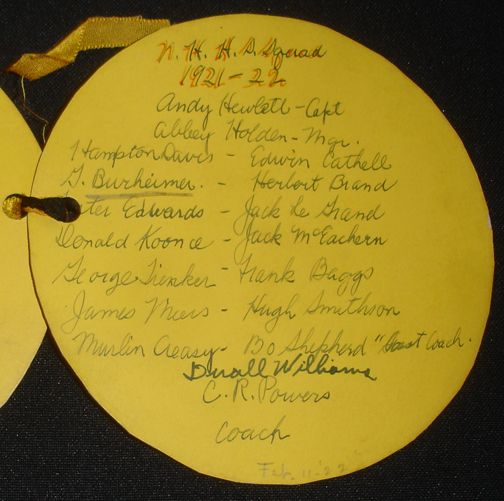 N. H. H. S. Squad
1921-22
Andy Hewlett - Capt
Abbey Holden - Mgr.
Hampton Davis - Edwin Cathell
G. Burheimer. - Herbert Brand
Edwards - Jack Le Grand
Donald Koonce - Jack McEachern
George Tienken - Frank Baggs
James Miers - Hugh Smithson
Murlin Creasy - Bo Shepherd "Coach.
Durall Williams
C. R. Powers
Coach
Feb. 11-22